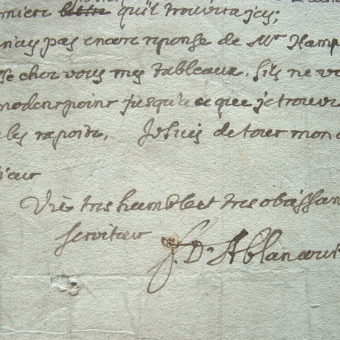 lettre qu'il trouvera
n'ay pas encore reponse de Mr Hamp
chez vous mes tableaux. s'ils ne vo
point jusqu'a ce que je trouve
les raporte. Je suis de tout mon
Vre tres humble et tres obeissan
serviteur f. D'Ablancour